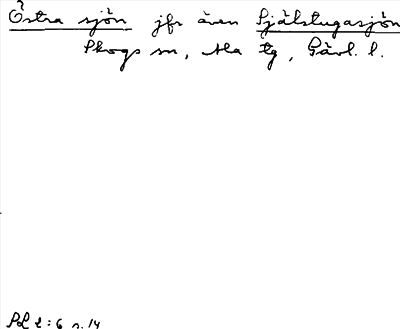 Östra sjön jfr även Själstugasjön
Skogs sn, Ala tg, Gävl. l.
Pol l: 6 s. 14